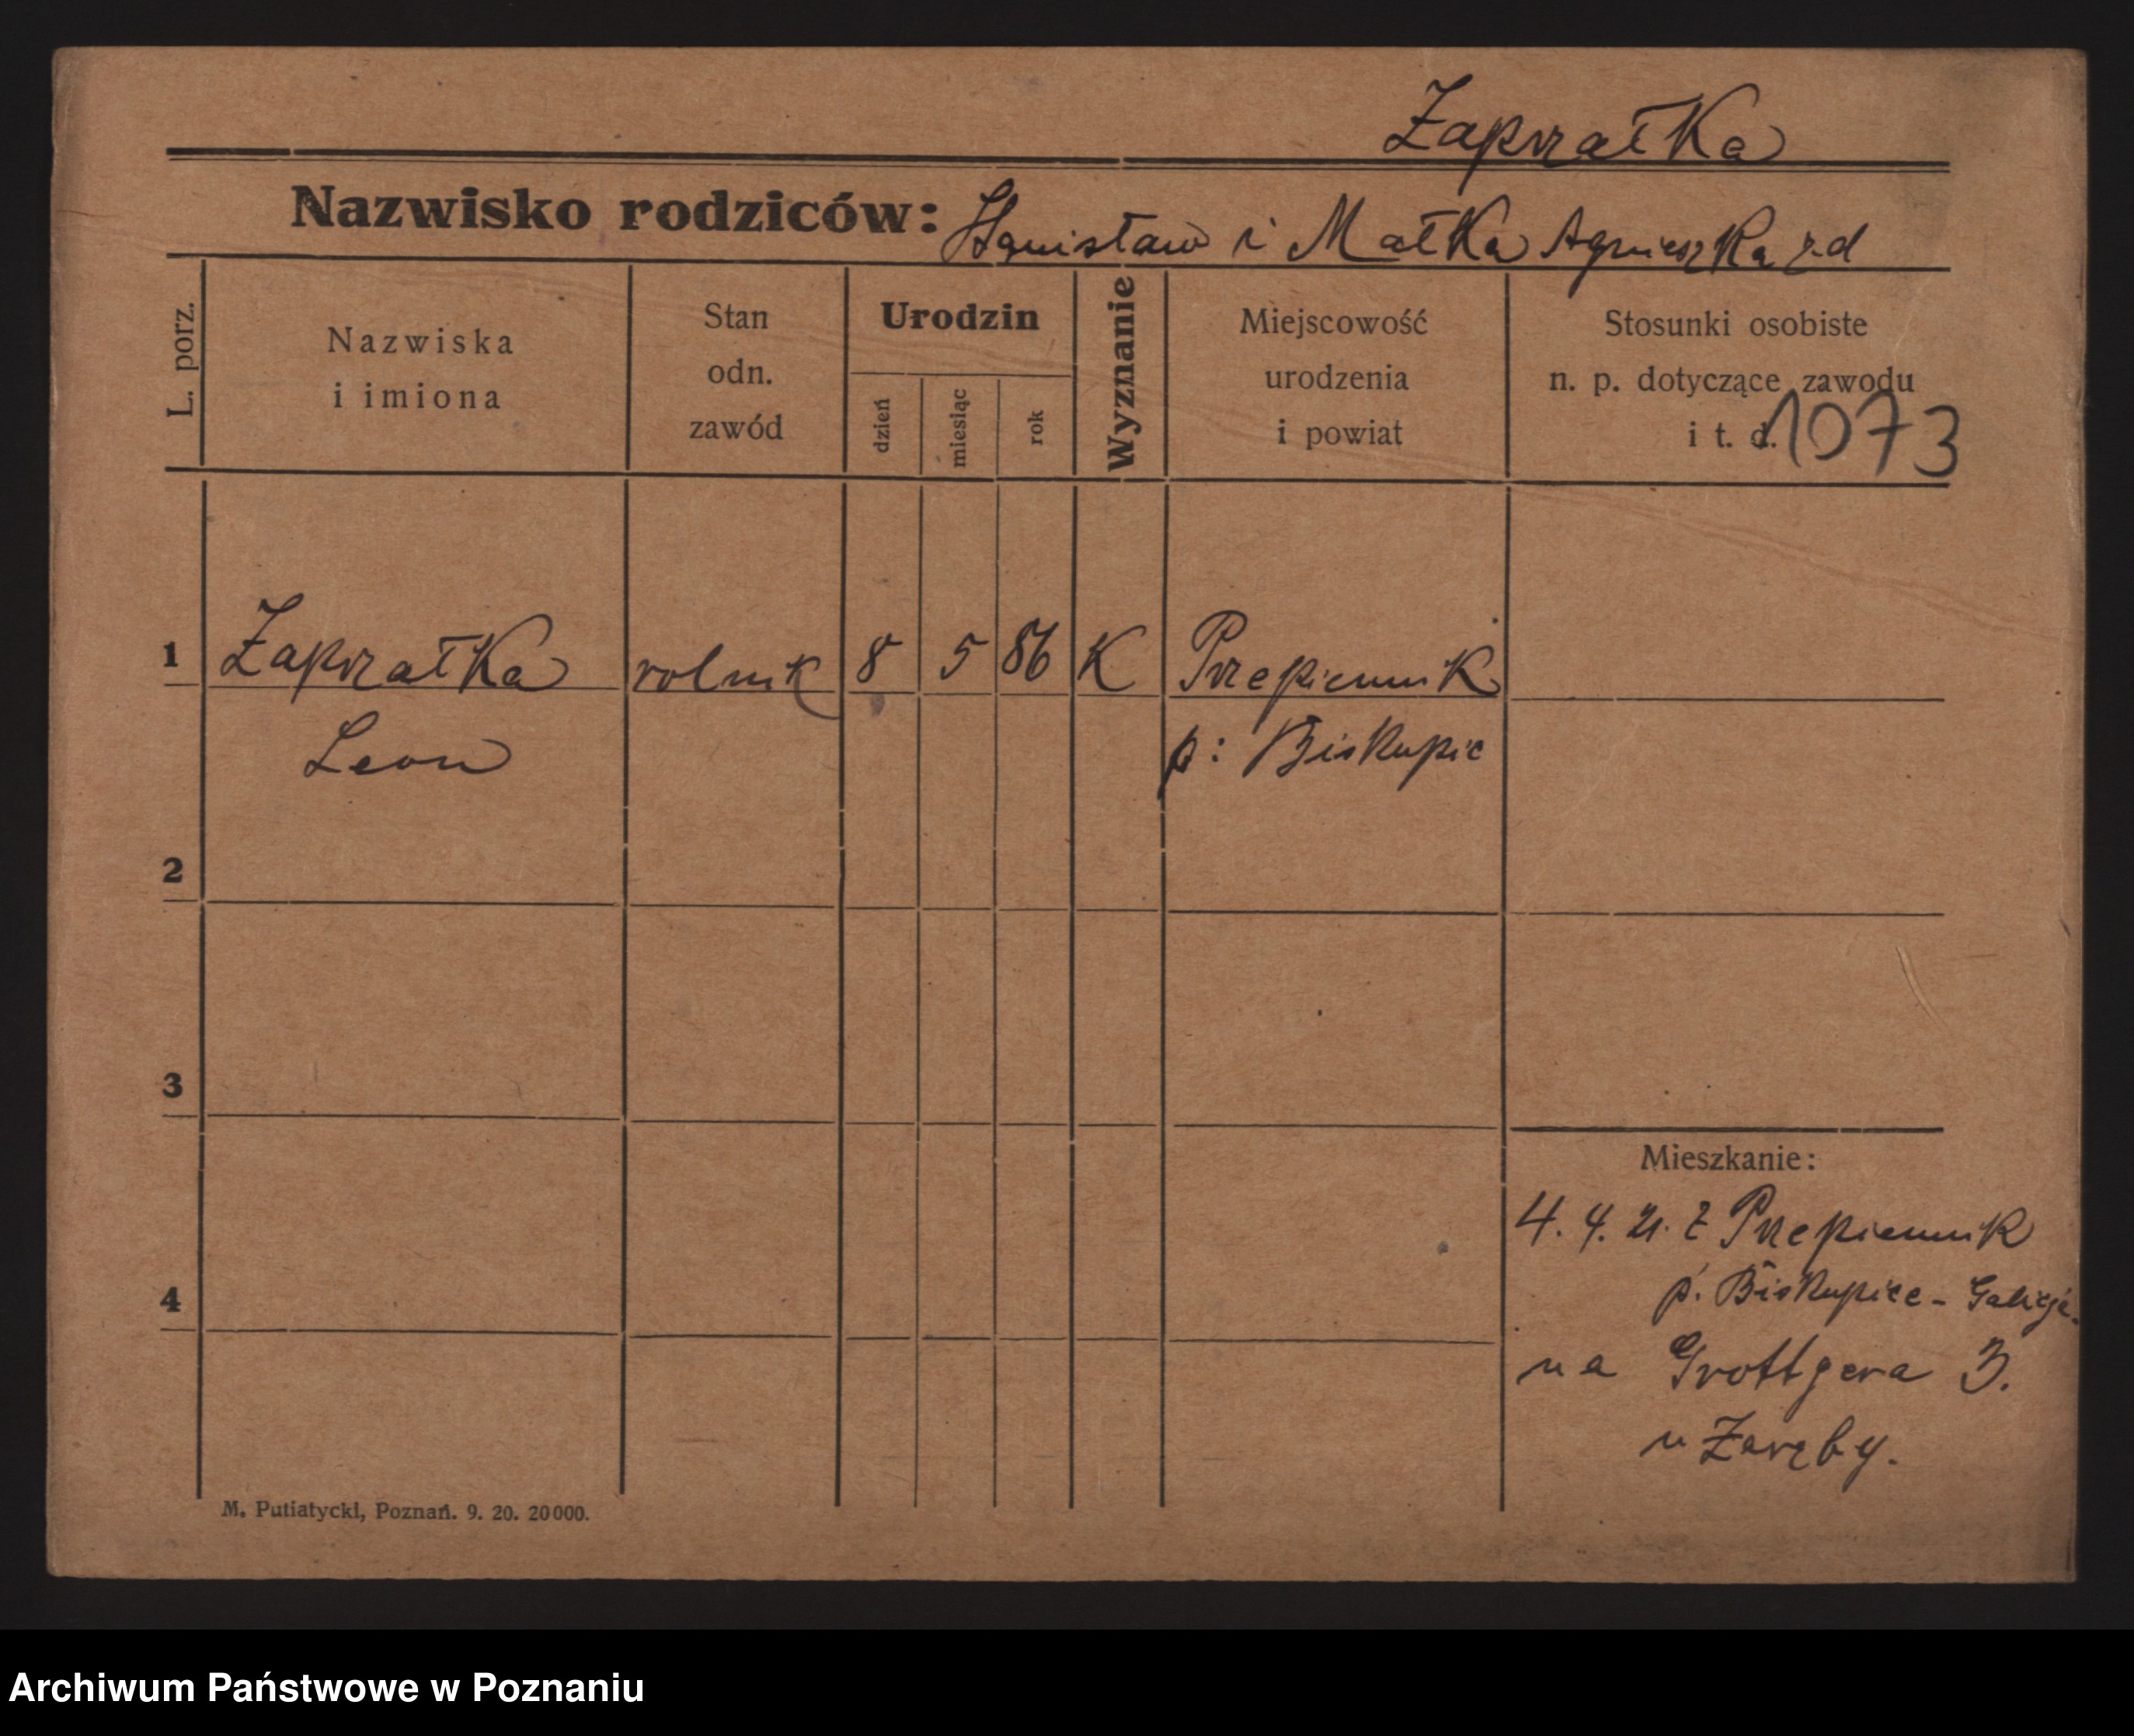 Zaprzałka
Nazwisko rodziców: Stanisław i Matka Agnieszka z d
L. porz.
Nazwiska
i imiona
Stan
odn.
zawód
Urodzin
dzień
miesiąc
rok
Wyznanie
Miejscowość
urodzenia
i powiat
Stosunki osobiste
n. p. dotyczące zawodu
i t. d. 1073
1 Zaprzałka rolnik 8 5 86 K Przepiennik
Leon p: Biskupic
2
3
4
Mieszkanie:
4. 4. 21. z Przepiennik
p. Biskupice - Galicja.
na Grottgera 3.
u Zaręby.
M. Putiatycki, Poznań. 9. 20. 20000.
Archiwum Państwowe w Poznaniu